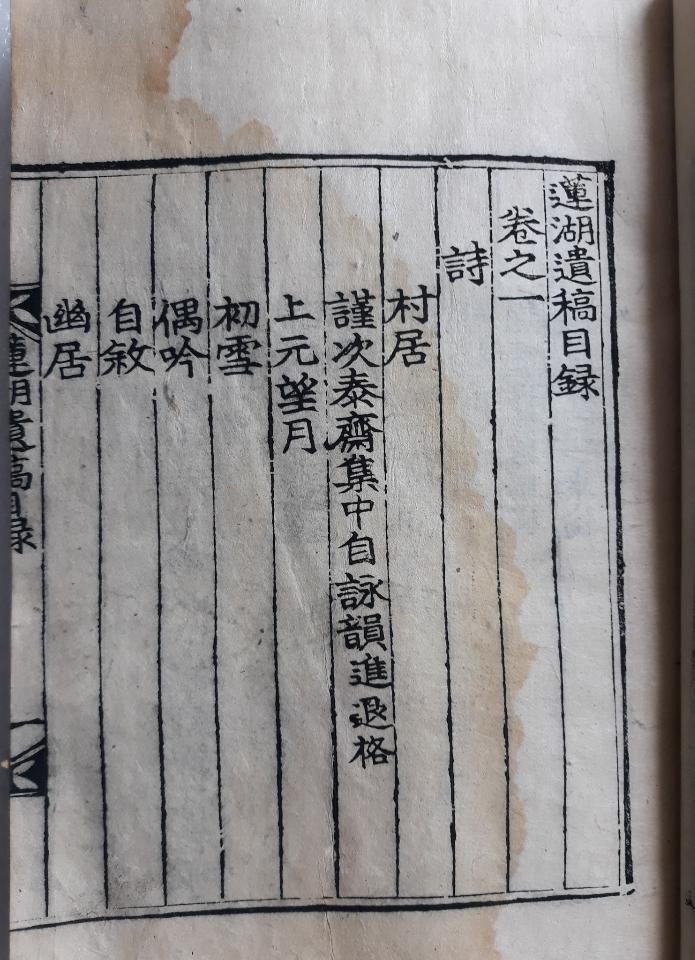 蓮湖遺稿目録
卷之一
詩
村居
謹次泰齋集中自詠韻進退格
上元望月
初雪
偶吟
自敘
幽居
蓮湖遺稿目録